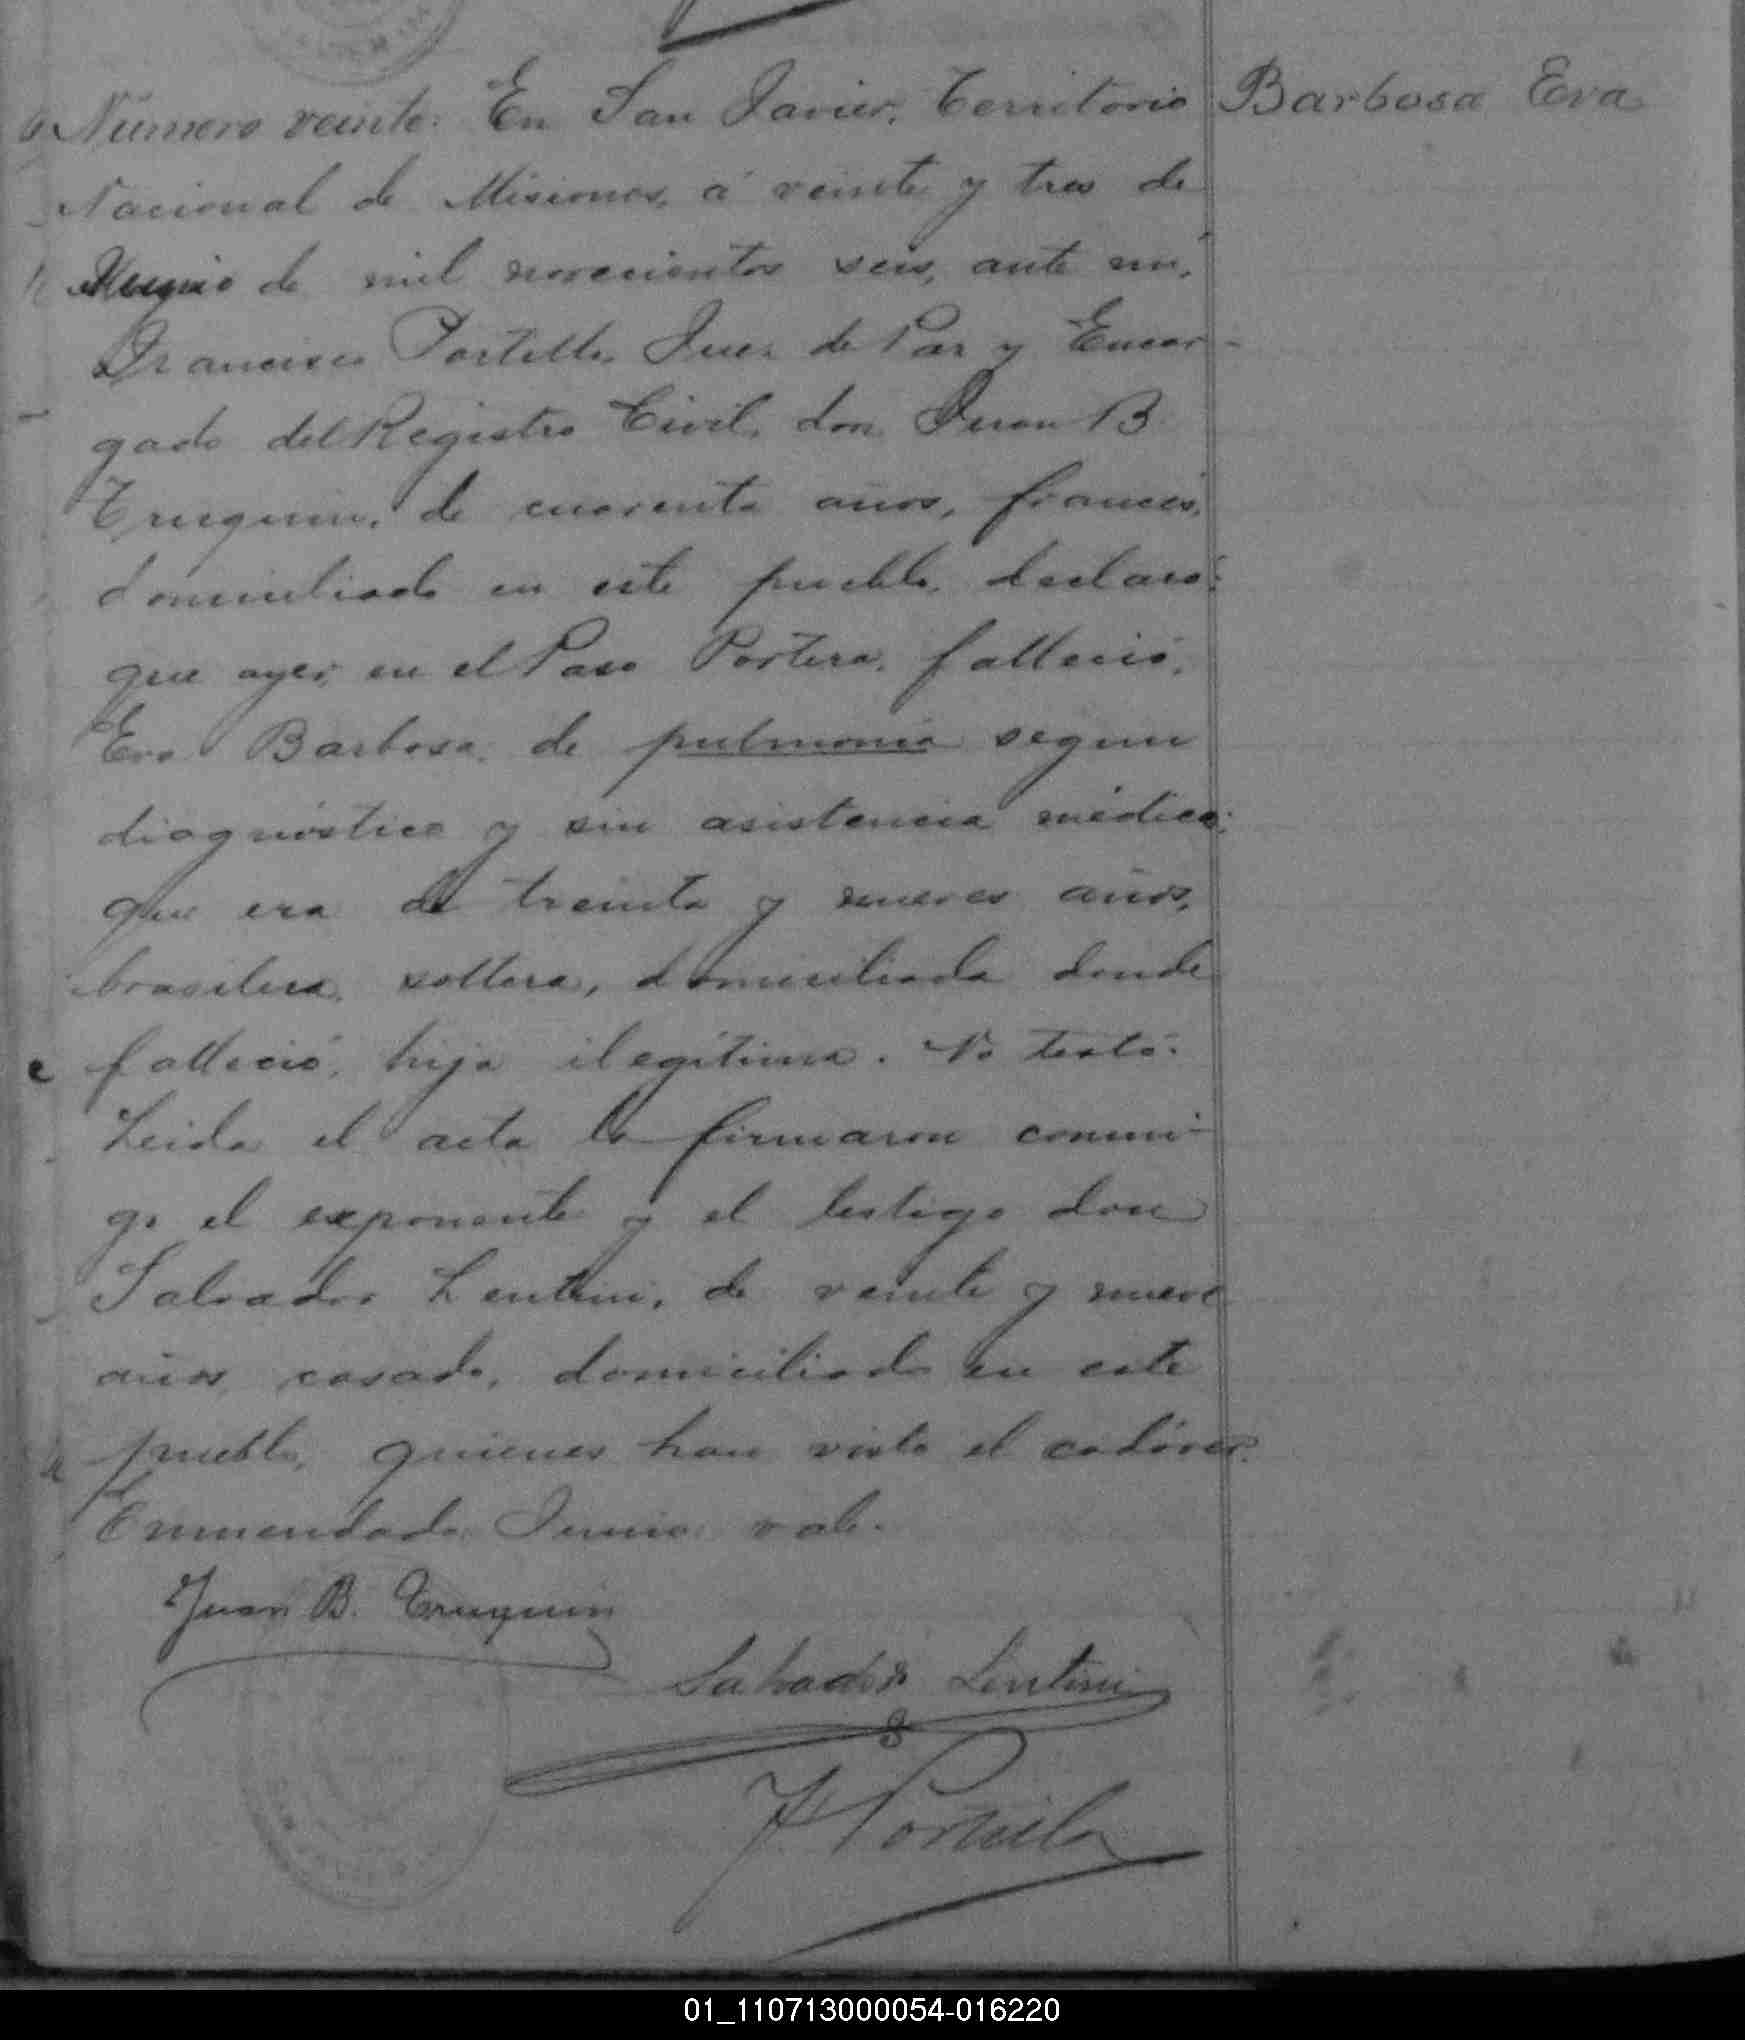 Número veinte. En San Javier, Territorio
Barbosa Eva
Nacional de Misiones, á veinte y tres de
Junio de mil novecientos seis, ante mí,
Francisco Portello, Juez de Paz y Encar-
gado del Registro Civil, don Juan B.
Truquin, de cuarenta años, francés,
domiciliado en este pueblo, declaró:
que ayer, en el Paso Portera, falleció,
Eva Barbosa, de pulmonia segun
diagnóstico y sin asistencia médica;
que era de treinta y nueves años,
brasilera, soltera, domiciliada donde
falleció, hija ilegítima. No testó.
Leida el acta la firmaron conmi-
go el exponente y el testigo don
Salvador Lentini, de veinte y nueve
años, casado, domiciliado en este
pueblo, quienes han visto el cadáver.
Enmendado: Junio: vale.
Juan B. Truquin
Salvador Lentini
F Portello
01_110713000054-016220